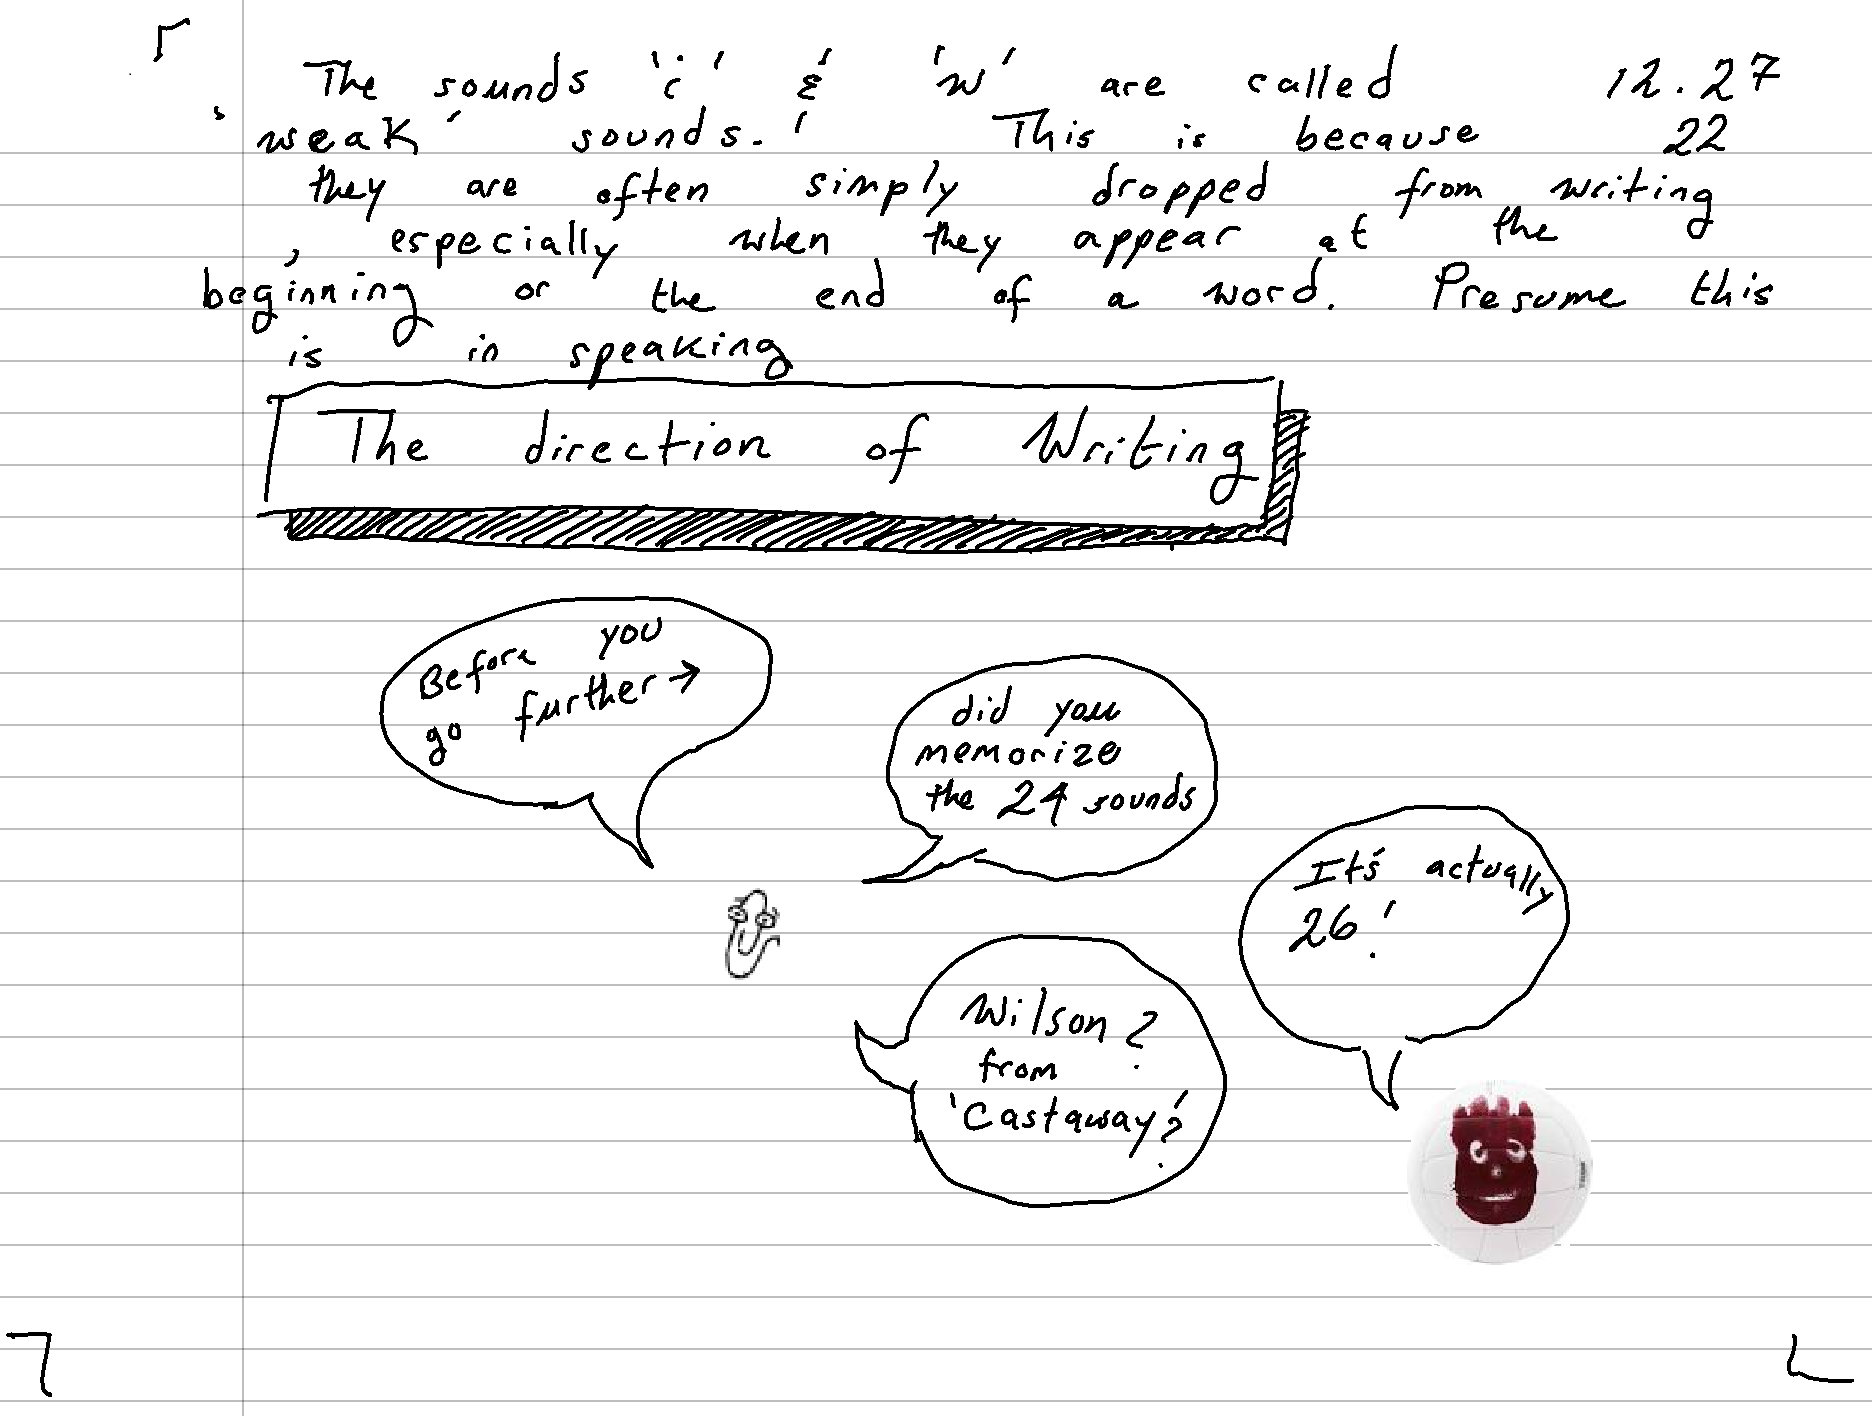 The sounds 'i' & 'w' are called 12.27
'weak' sounds.' This is because 22
they are often simply dropped from writing
, especially when they appear at the
beginning or the end of a word. Presume this
is in speaking
The direction of Writing
Before you
go further →
did you
memorize
the 24 sounds
It's actually
26!
Wilson?
from
'Castaway?